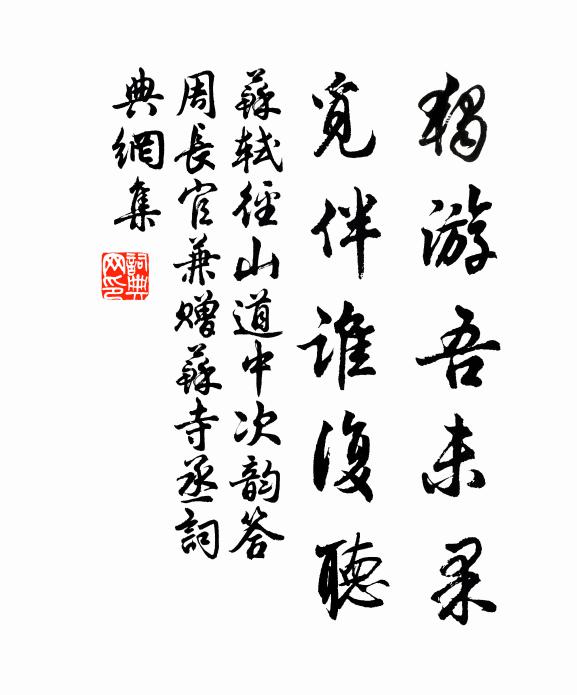 獨游吾未果
覓伴誰復聽
蘇軾徑山道中次韵答
周長官兼贈蘇寺丞詞
典網集
詞典
网印